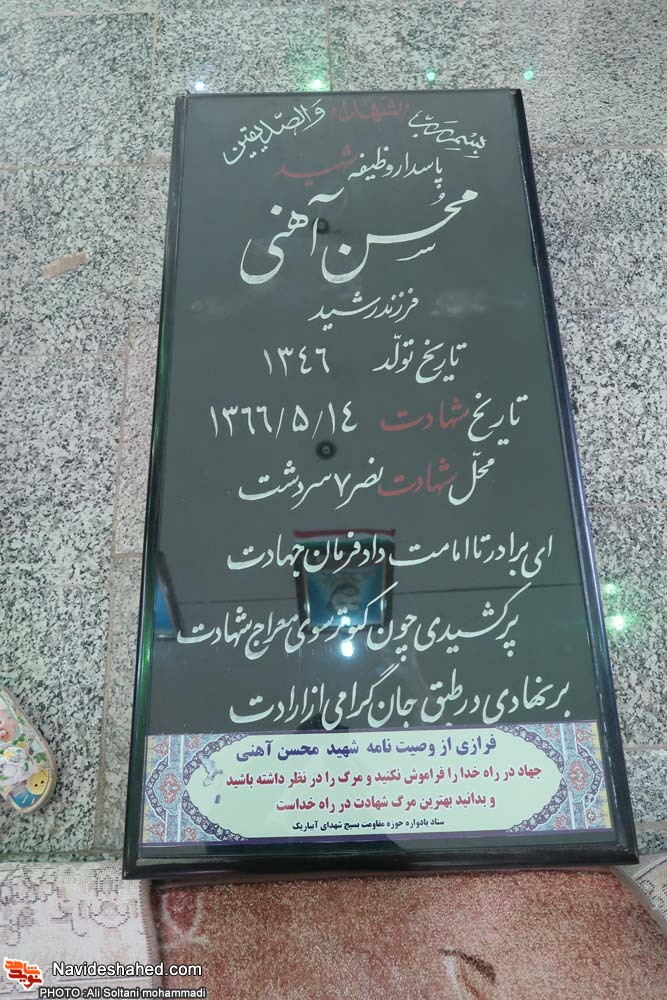 بسم رب الشهداء والصدیقین
پاسدار وظیفه شهید
محسن آهنی
فرزند رشید
تاریخ تولّد ۱۳۴۶
تاریخ شهادت ۱۳۶۶/۵/۱۴
محلّ شهادت نصر ۷ سردشت
ای برادر تا امامت داد فرمان جهادت
پر کشیدی چون کبوتر سوی معراج شهادت
بر نهادی در طبق جان گرامی از ارادت
فرازی از وصیت نامه شهید محسن آهنی
جهاد در راه خدا را فراموش نکنید و مرگ را در نظر داشته باشید
و بدانید بهترین مرگ شهادت در راه خداست
ستاد یادواره حوزه مقاومت بسیج شهدای آبباریک
Navideshahed.com
PHOTO :Ali Soltani mohammadi